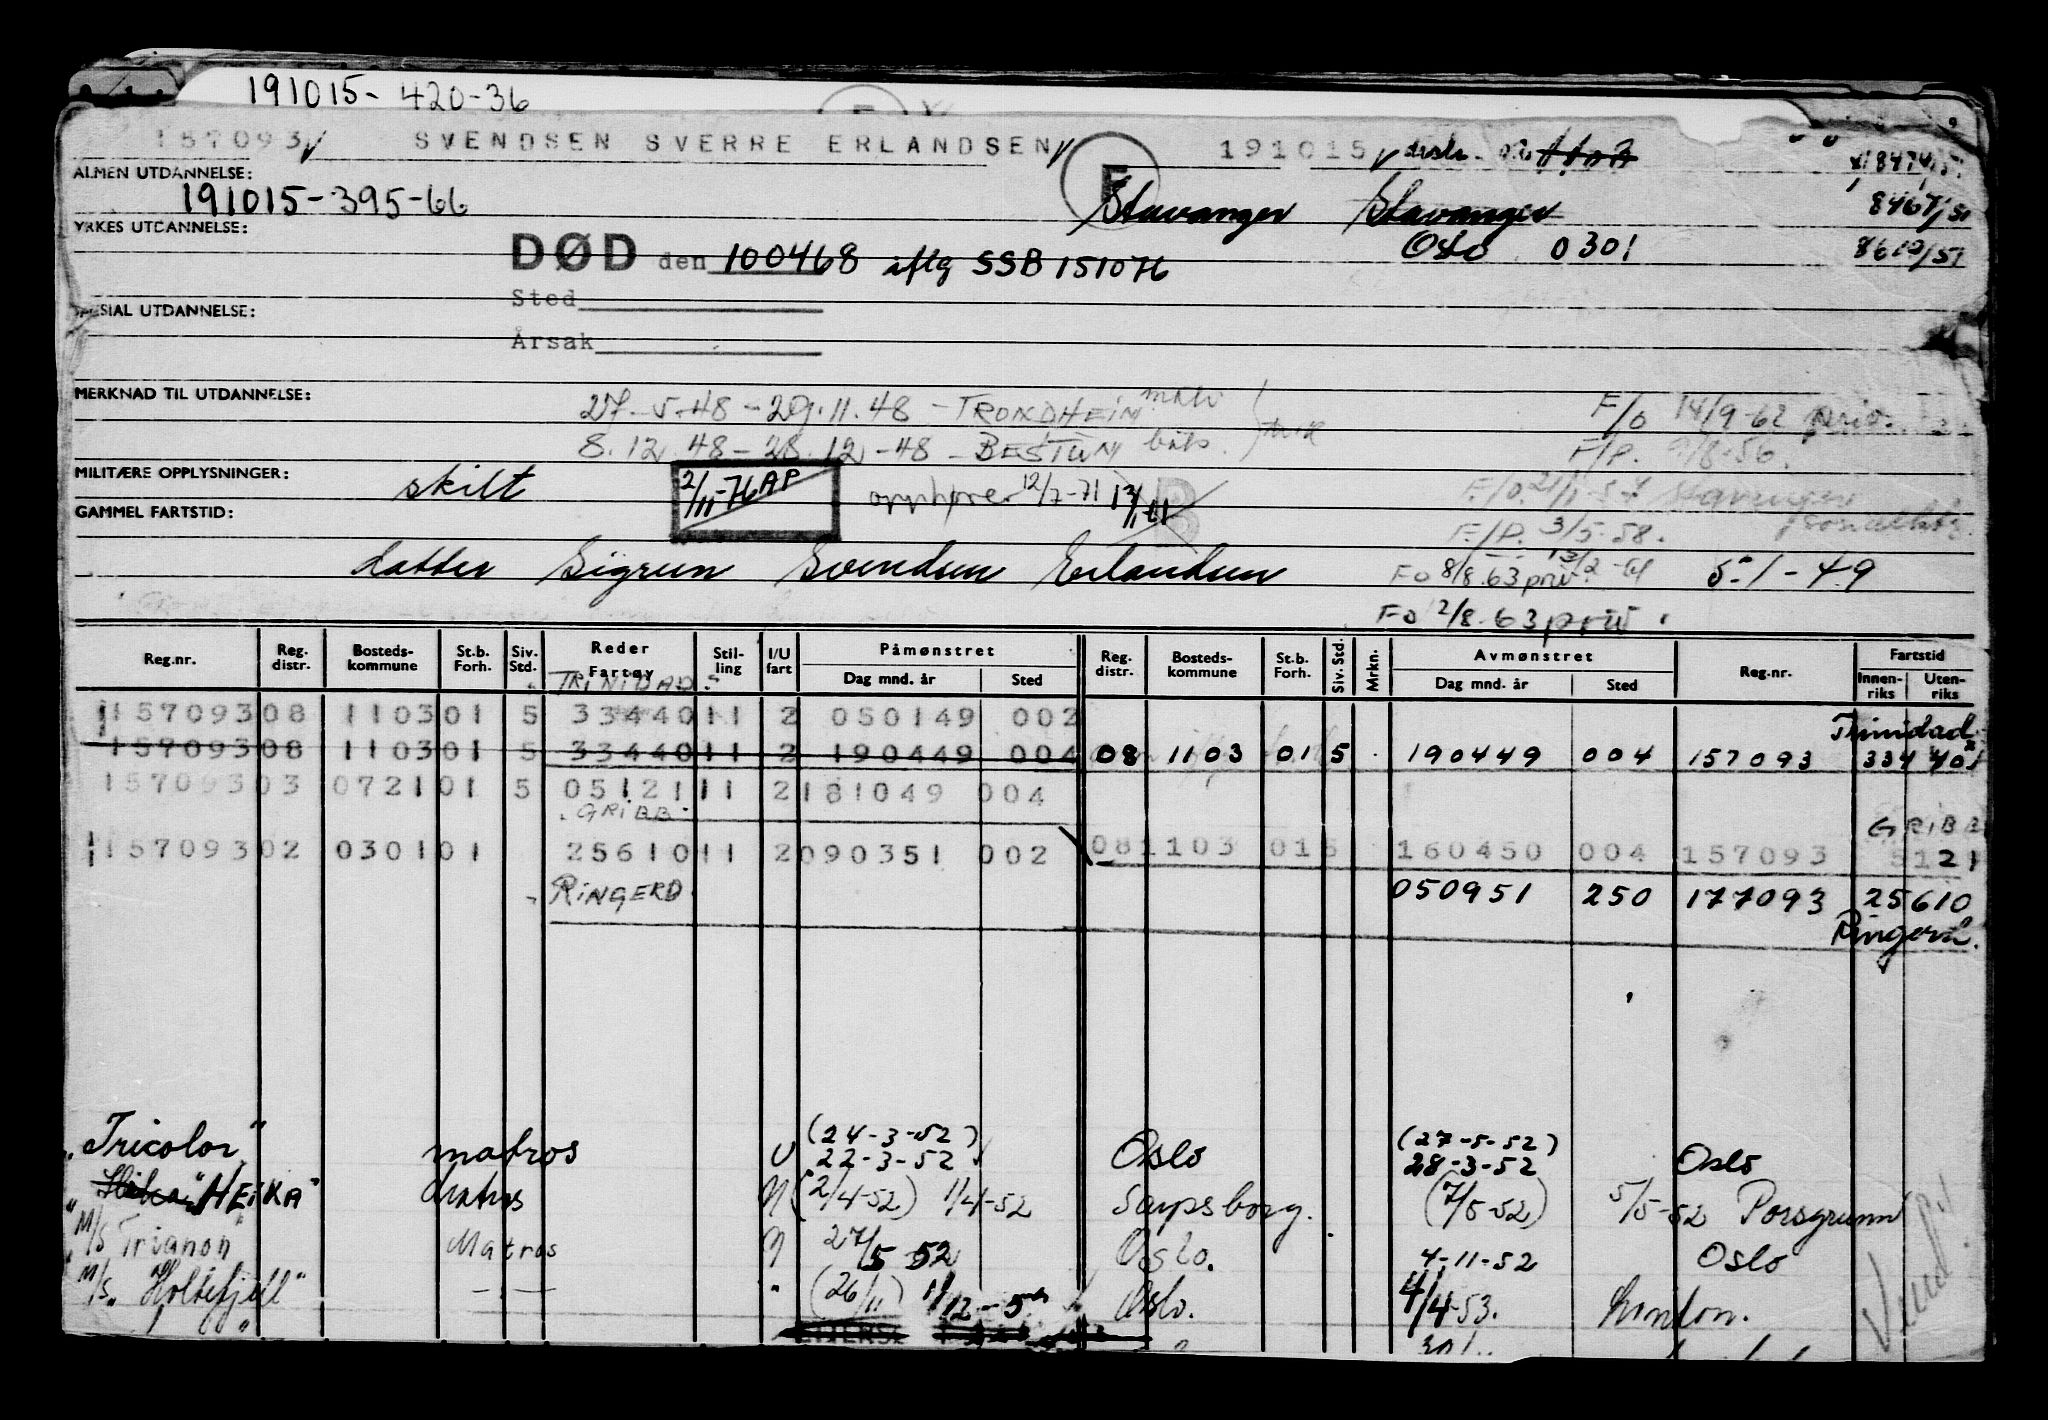 191015- 420-36
157093 SVENDSEN SVERRE ERLANDSEN 191015
ALMEN UTDANNELSE:
191015-395-66 Stavanger Stavanger 8467/51
YRKES UTDANNELSE:
DØD den 100468 iflg SSB 151076 Oslo 0301
Sted
SPESIAL UTDANNELSE:
Årsak
MERKNAD TIL UTDANNELSE:
27-5-48 - 29.11.48 - TRONDHEIM F/o 14/9-62 priv.
8.12.48 - 28.12-48 - BESTUM F/P. /8-56.
MILITÆRE OPPLYSNINGER:
skilt 2/11-76 AP opphører 12/7-71
GAMMEL FARTSTID:
F/P. 3/5-58.
datter Sigrun Svendsen Erlandsen Fo 8/8.63 priv. 5.1-49
Fo 12/8.63 priv.
Reg.nr. Reg. distr. Bosteds-kommune St.b. Forh. Siv. Std. Reder Fartøy Stil-ling I/U fart Påmønstret Dag mnd. år Sted Reg. distr. Bosteds-kommune St.b. Forh. Siv. Std. Mrkn. Avmønstret Dag mnd. år Sted Reg.nr. Fartstid Innen-riks Uten-riks
TRINIDAD
157093 08 1103 01 5 33440 11 2 050149 002 Trinidad
157093 08 1103 01 5 33440 11 2 190449 004 08 1103 01 5 190449 004 157093 334 40
157093 03 0721 01 5 05121 11 2 181049 004
GRIBB GRIBB
157093 02 0301 01 25610 11 2 090351 002 08 1103 01 5 160450 004 157093 5121
RINGERD 050951 250 177093 25610
Ringerd.
"Tricolor" matros U (24-3-52) 22-3-52 Oslo (27-5-52) 28-3-52 Oslo
"HEIKA" Matros N (2/4-52) 1/4-52 Sarpsborg. (7/5-52) 5/5-52 Porsgrunn
M/S "Trianon" Matros N 27/5 52 Oslo. 4-11-52 Oslo
M/S "Holtefjell" -- " (26/11) 1/12 - Oslo. 4/4-53.